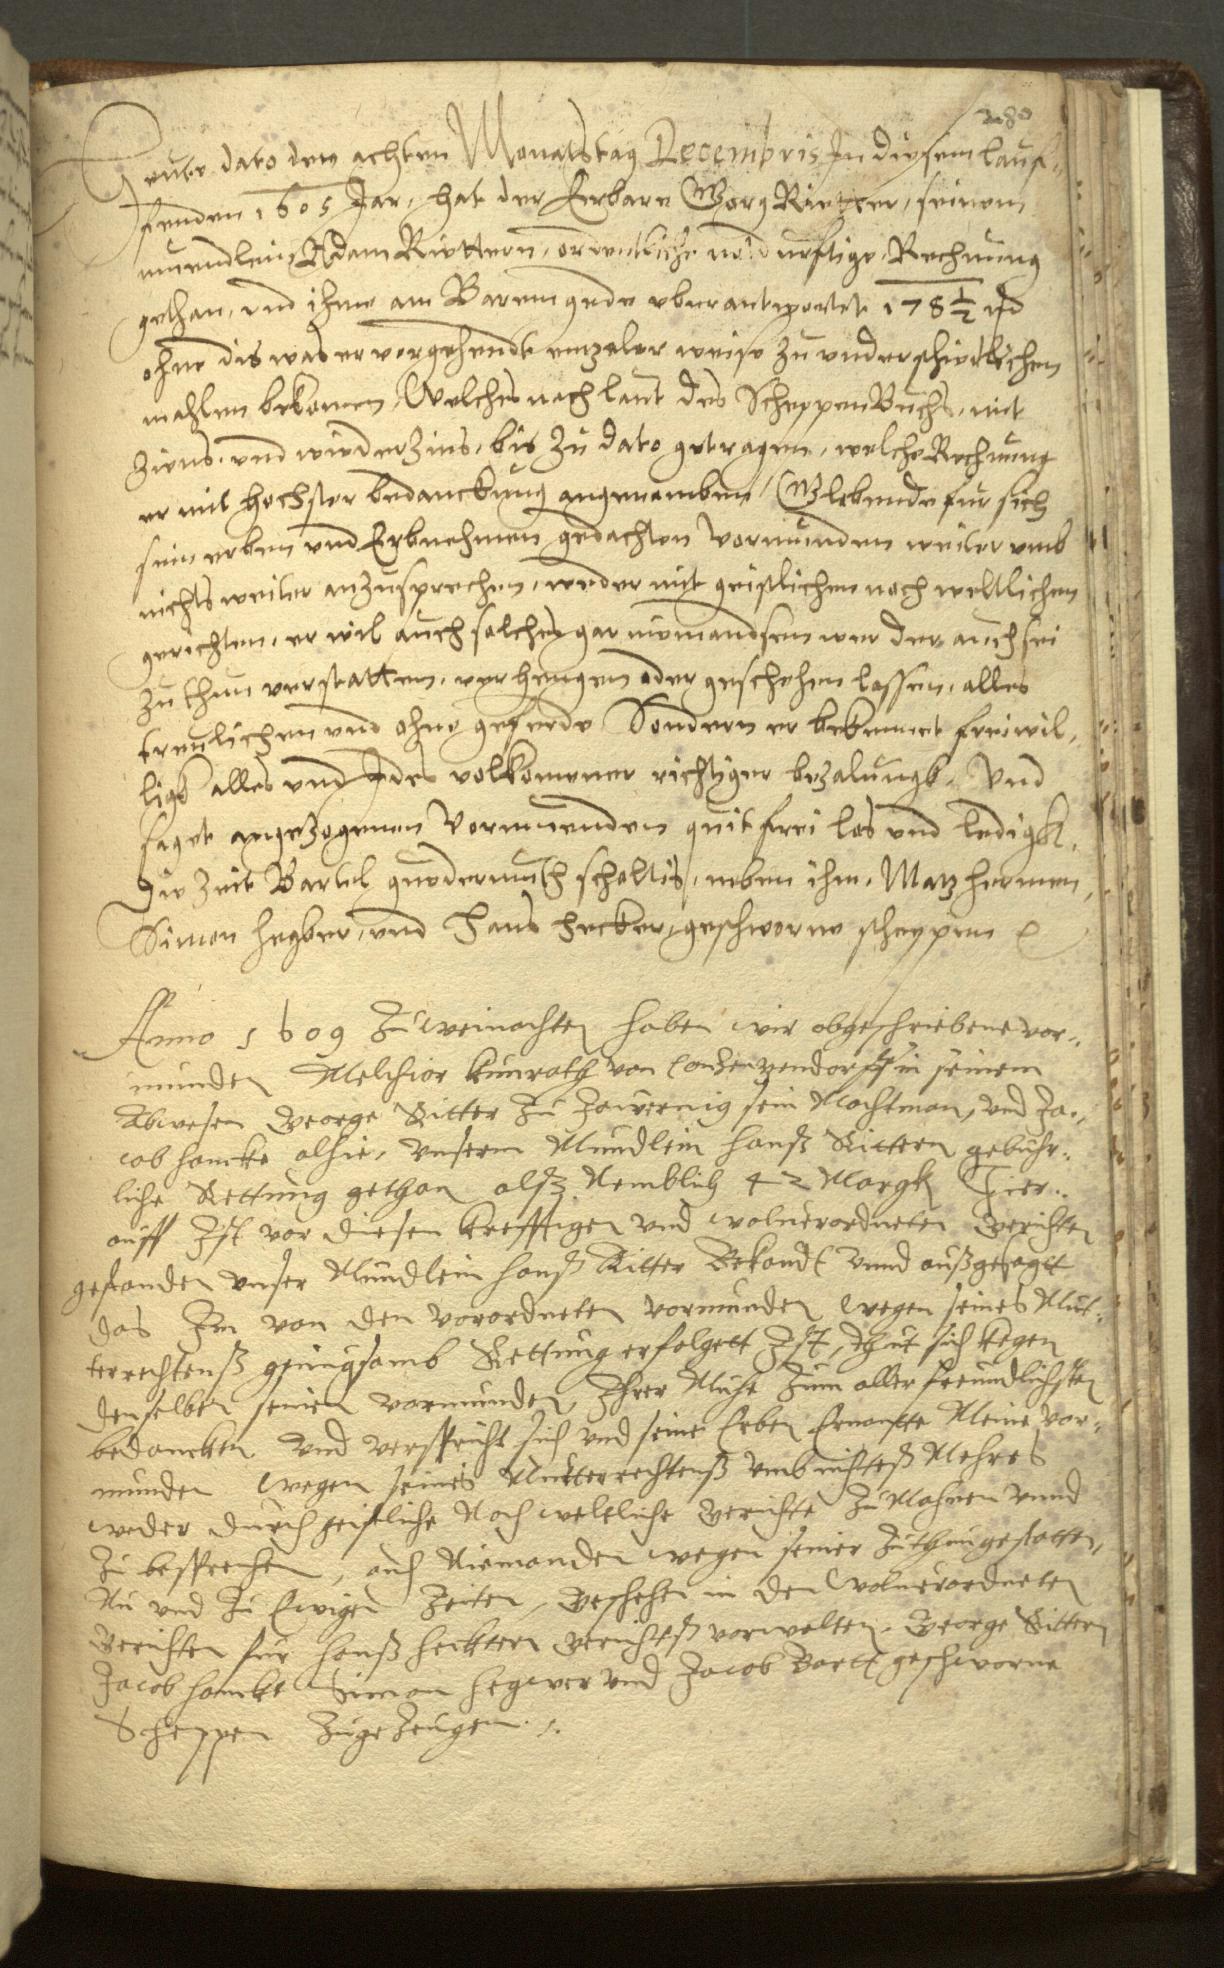 280
Heute dato den achten Monatstag Decembris In diesem lauf-
fenden 1605 Jar, hat der Erbare Gorg Rietter, seinem
muendlein Adam Riettern, ordentliche notdurftige Rechnung
gethan, und ihme am Barem gede uberantwortet 178½
ohne dis was er vorgehende entzeler weise zu underschiedlichen
mahlen bekomen, Welches nach laut des Scheppen Buchs, mit
Ziens und wiederzins, bis zu dato getragen, welche Rechnung
er mit hochster bedanckung angenomben, Glebende fur sich
sein erben und Erbnehmen gedachten Vormunden weiter umb
nichts weiter anzusprechen, weder mit geistlichen noch weltlichen
gerichten, er wil auch solches gar niemandsen wer der auch sei
zu thun verstatten, verhengen oder geschehen lassen, alles
treulichen und ohne geferde Sondern er bekennet freiwil-
ligk alles und Jdes volkomener richtiger bezalungk, Und
saget angezogenen Vormuenden quit frei los und ledigk,
Die Zeit Bartel guodermuth scholtis, neben ihm, Matz hermen,
Simon hegber, und Hans hecker, geschworne scheppen
Anno 1609 Zu weinachten haben wir obgeschriebene vor-
munden Melchior kunrath von in seinem
Abwesen George Ritter Zu Jauernig sein Machtman, und Ja-
cob hancke alhie, unserm Mundlein hanß Rittern gebuhr-
liche Rettung gethan alß Nemblich 42 Margk Hier-
auff Ist vor diesen krefftigen und wolverordneten Gerichten
gestanden unser Mundlein hanß Ritter Bekandt unnd außgesagtt
das Im von den verordneten vormunden wegen seines Mut-
terrechtenß genugsamb Rettung erfolgett Ist, thut sich kegen
denselben seinen vormunden, Ihrer Muhe Zum aller freundlichsten
bedancken und verspricht sich und seine Erben Ernantte Meine vor-
munden wegen seines Mutterrechtenß umb nichteß Mehres
weder durch geistliche Noch weltliche Gerichte Zu Mahnen unnd
Zu besprechen, auch Niemanden wegen seiner Zuthun gestatten,
Nu und Zu Ewigen Zeiten, Geschehen in den wolverordneten
Gerichten fur hanß heckern Gerichteß vorwalten, George Rittern
Jacob hancke Simon hegwer und Jacob Bartt geschworne
Scheppen Zugezeugen